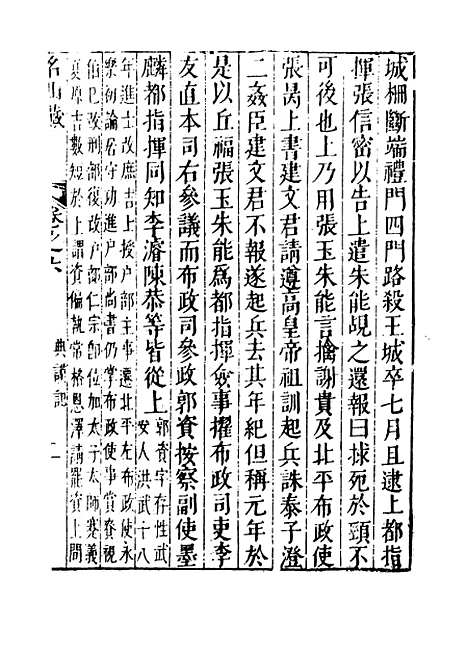 城柵斷端禮門四門路殺王城卒七月且逮上都指
揮張信密以告上遣朱能覘之還報曰捄死於頸不
可後也上乃用張玉朱能言擒謝貴及北平布政使
張昺上書建文君請遵高皇帝祖訓起兵誅泰子澄
二姦臣建文君不報遂起兵去其年紀但稱元年於
是以丘福張玉朱能爲都指揮僉事擢布政司吏李
友直本司右參議而布政司參政郭資按察副使墨
麟都指揮同知李濬陳恭等皆從上
郭資字存性武
安人洪武十八
年進士改庶吉上授戶部主事遷北平左布政使永
樂初論居守功進戶部尚書仍掌布政使事賞賚視
伯巳改刑部復改戶部仁宗卽位加太子太師蹇義
夏原吉數短於上謂資偏執常格恩澤請罷資上問
名山藏
典謨記
二